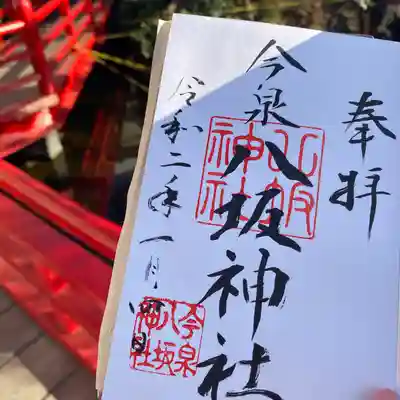 奉拝
今泉八坂神社
八坂神社
令和二年一月四日
今泉八坂神社